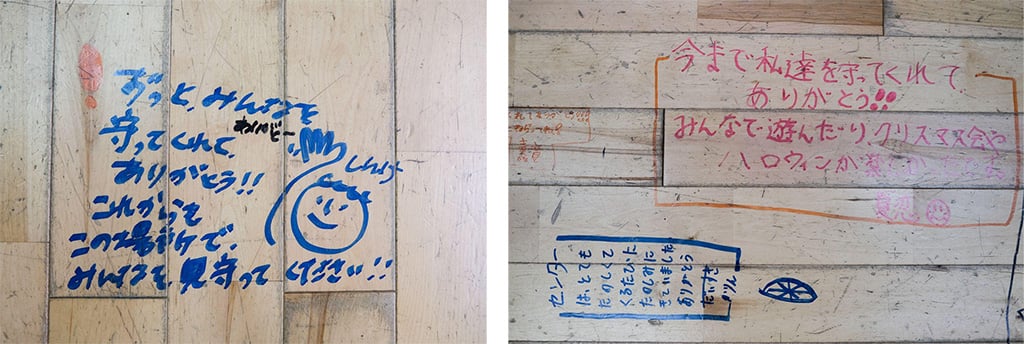 ずっと、みんなを
守ってくれて、
ありがとう!!
これからも
この場所で、
みんなを、見守ってください!!
しんげん
今まで私達を守ってくれて
ありがとう!!
みんなで遊んだり、クリスマス会や
ハロウィンが楽しかったです
センター
は、とても
たのしくて
くるたびに
たのしみに
きていました
ありがとう